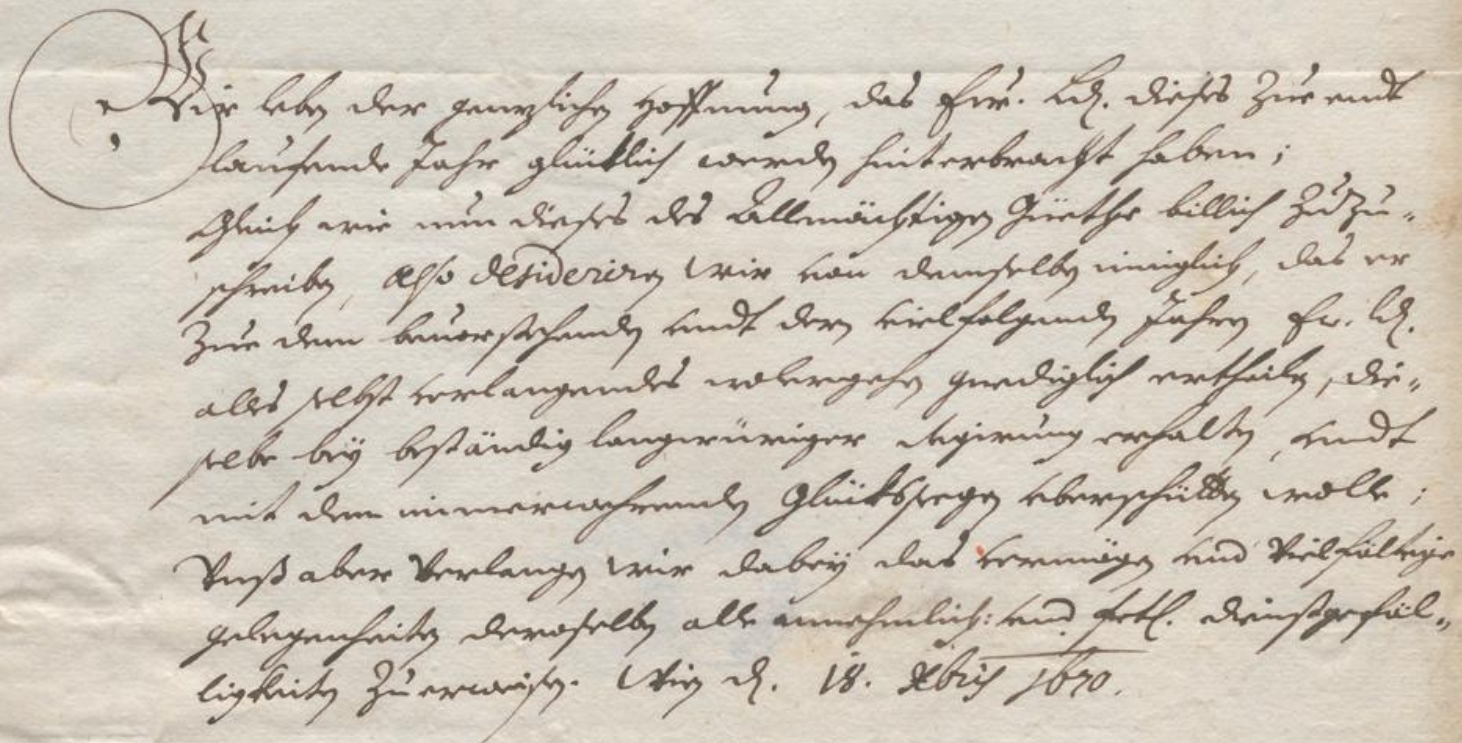 Wir leben der gentzlichen Hoffnung, das Ew. Ld. dieses Zue endt
lauffende Jahr glüklich werden hinterbracht haben;
Gleich wie nun dieses des Allmächtigen Güethe billich Zuzu-
schreiben, also desiderirn wir von demselben inniglich, das er
Zue dem bevorstehenden undt dern vielfolgenden Jahren Ew. Ld.
alles selbst verlangendes wolergehen gnediglich ertheilen, die-
selbe bey beständig langwüriger regirung erhalten, undt
mit dem immerwehrenden Glüksseegen überschütten wolle;
Vnß aber Verlangen wir dabey das vermögen und Vielfältige
gelegenheiten deroselben alle annehmlich: und dienstgefäl-
ligkeiten Zu erweisen. Wien d. 18. Xbris 1670.